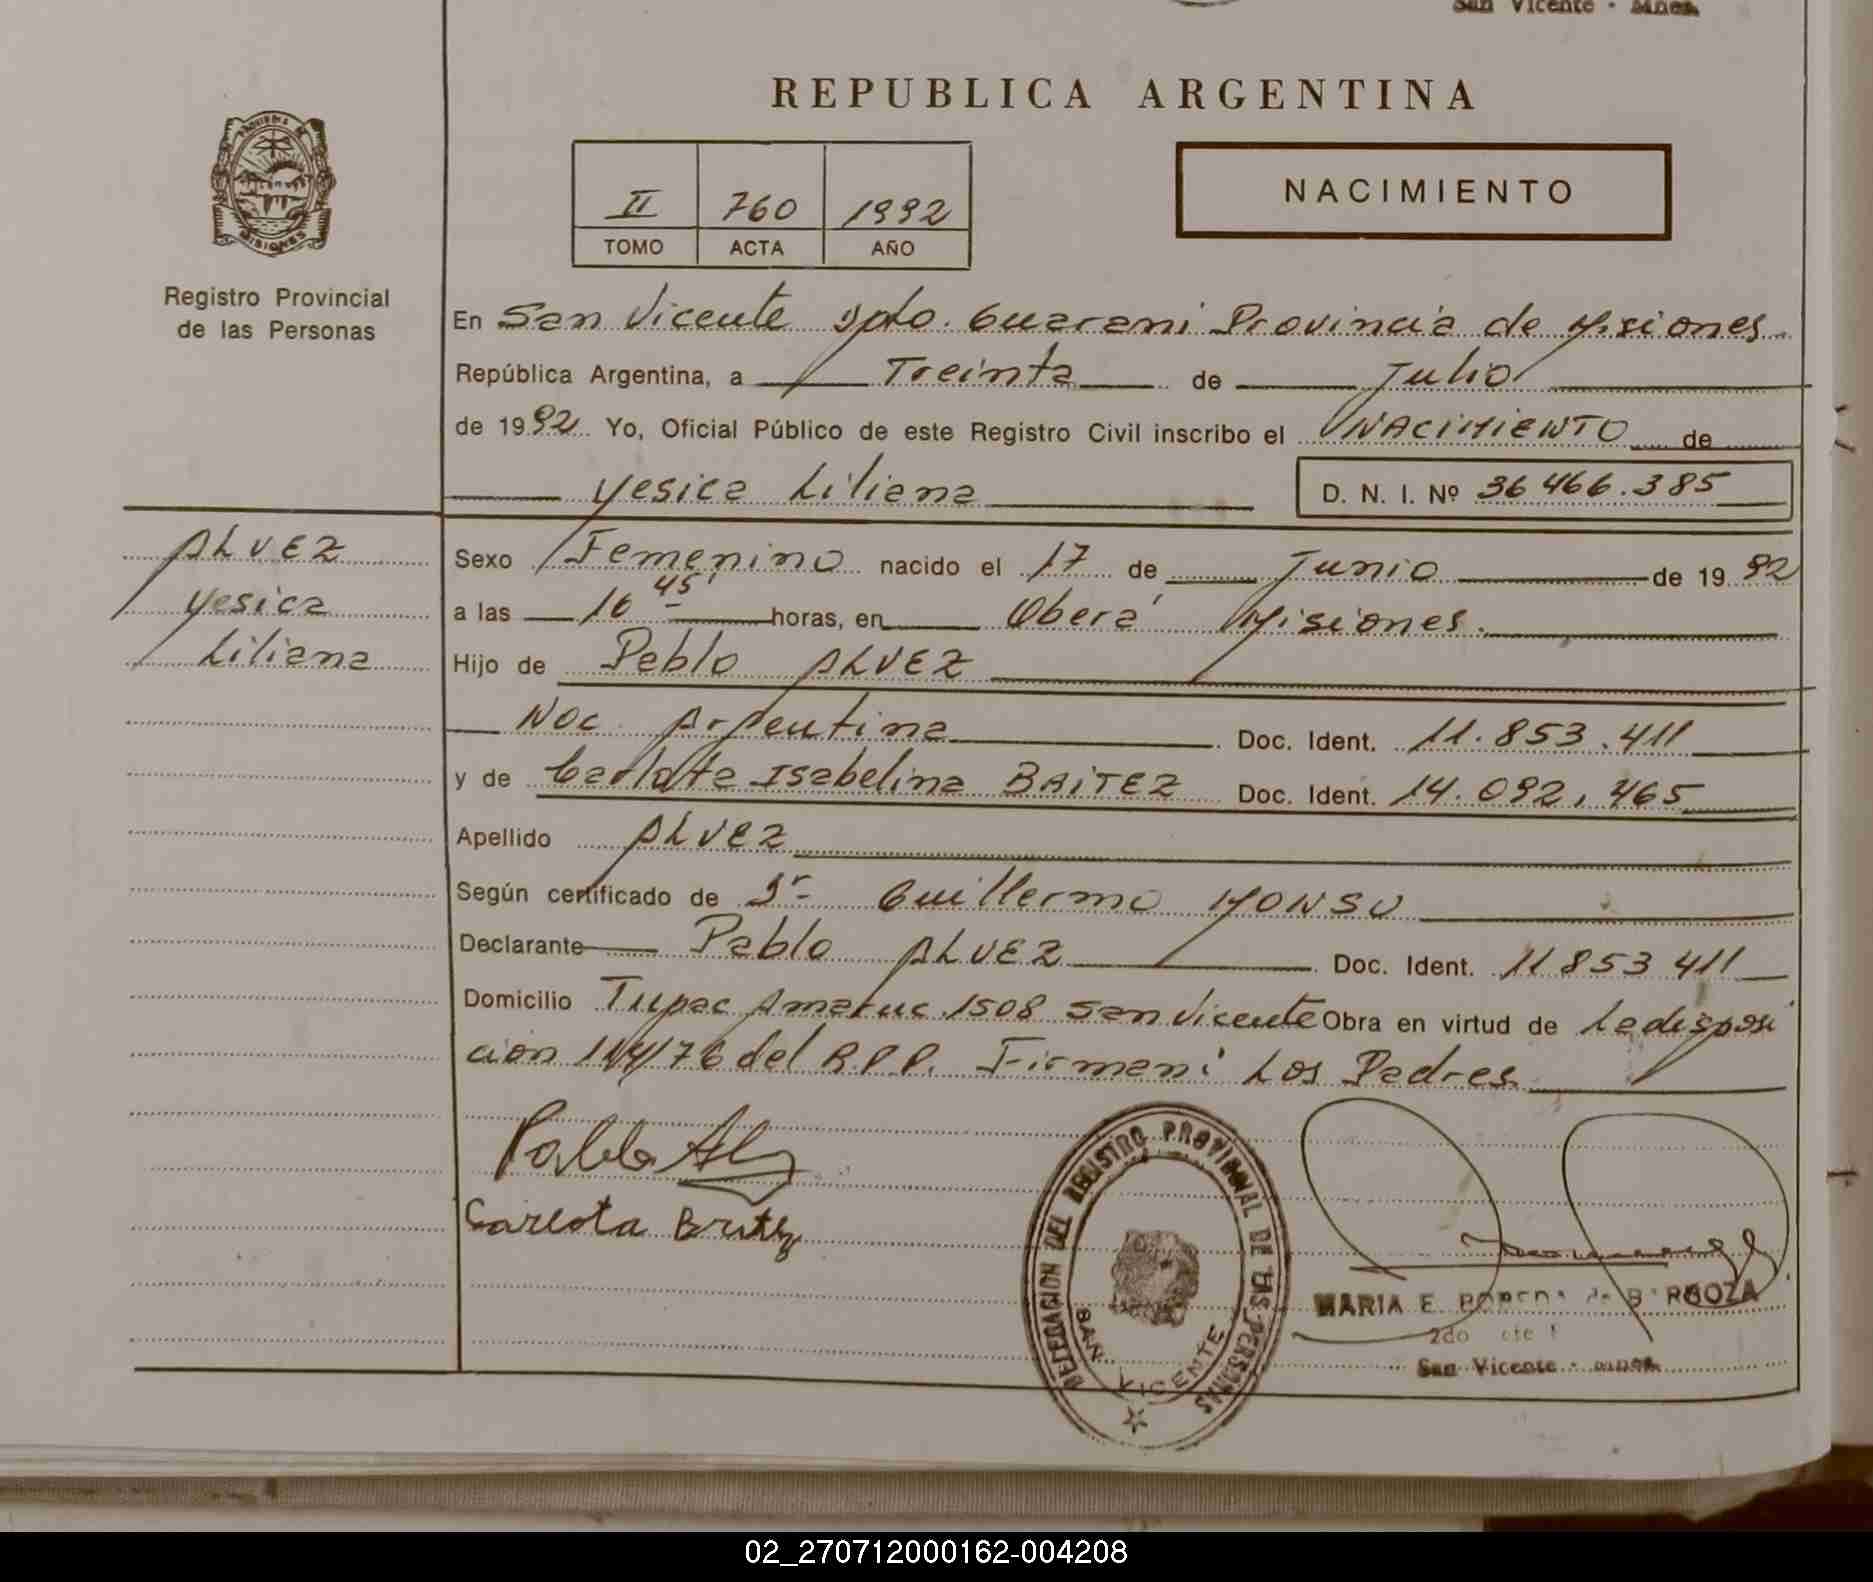 San Vicente - Mnes.
REPUBLICA ARGENTINA
II 760 1992
TOMO ACTA AÑO
NACIMIENTO
PROVINCIA DE
MISIONES
Registro Provincial
de las Personas
En San Vicente Dpto. Guarani Provincia de Misiones.
República Argentina, a Treinta de Julio
de 1992 Yo, Oficial Público de este Registro Civil inscribo el NACIMIENTO de
Yesica Liliana D. N. I. Nº 36 466.385
ALVEZ
Yesica
Liliana
Sexo Femenino nacido el 17 de Junio de 1992
a las 16 45 horas, en Oberá Misiones.
Hijo de Pablo ALVEZ
Nac. Argentina Doc. Ident. 11.853.411
y de Carlota Isabelina BAITEZ Doc. Ident. 14.092.465
Apellido ALVEZ
Según certificado de Dr Guillermo MONSU
Declarante Pablo ALVEZ Doc. Ident. 11 853 411
Domicilio Tupac Amaruc 1508 San Vicente Obra en virtud de La disposi
cion /76 del R.P.P. Firman: Los Padres
Pablo Alvz
Carlota
DELEGACION DEL REGISTRO PROVINCIAL DE LAS PERSONAS
SAN VICENTE
MARIA E. de BARBOZA
2do
San Vicente - Mnes.
02_270712000162-004208